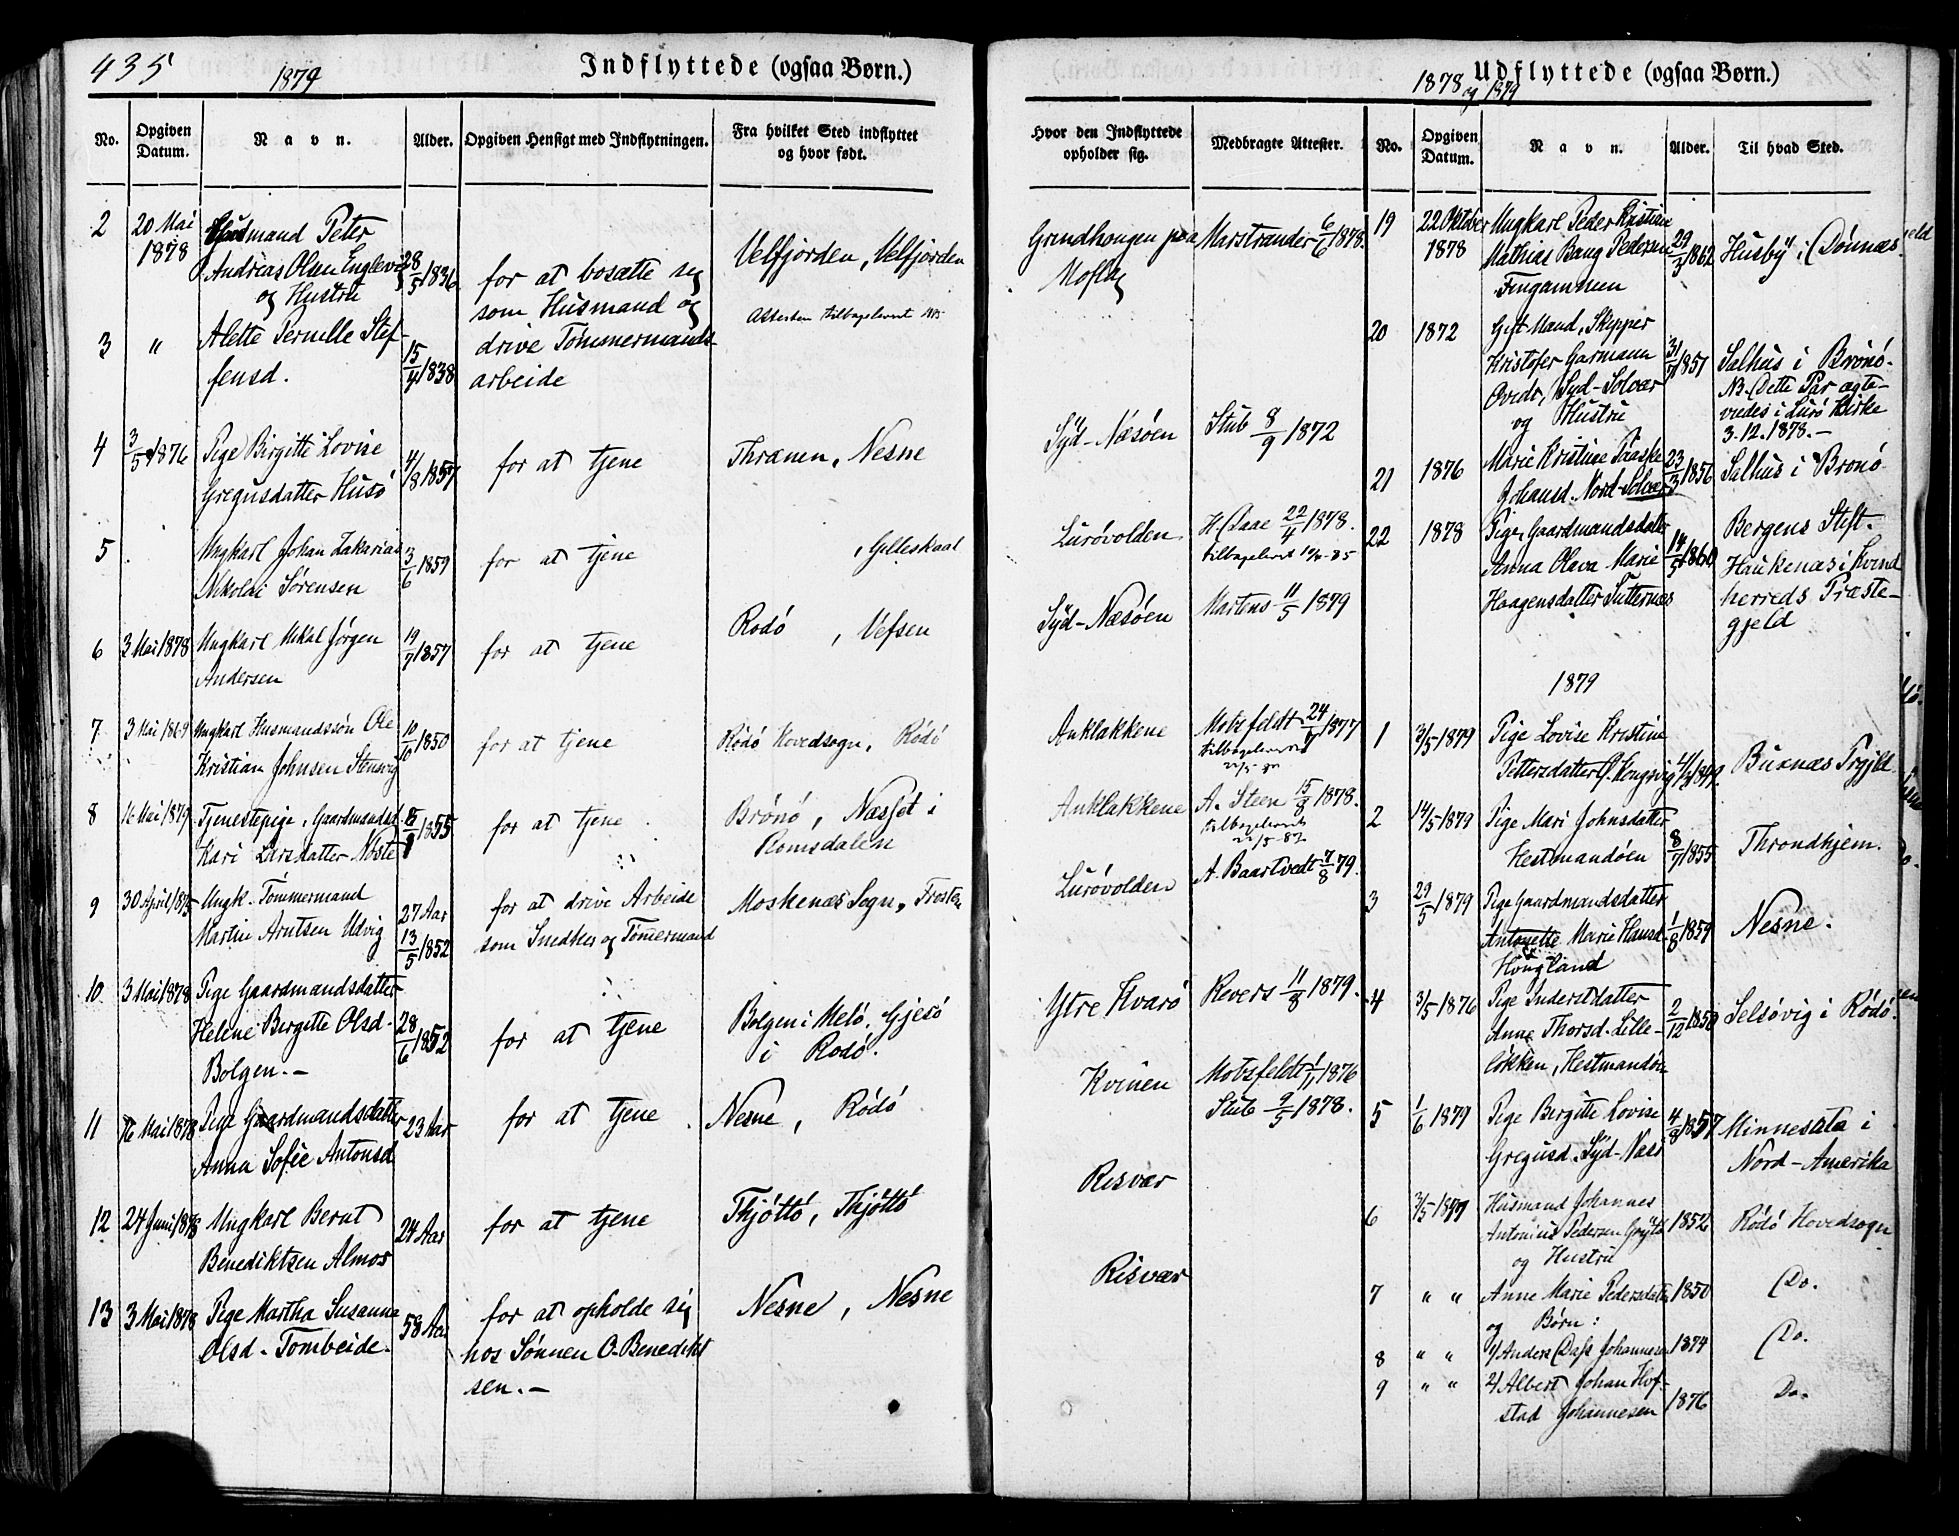 435
1879
Indflyttede (ogsaa Børn.)
No.
Opgiven Datum.
Navn.
Alder.
Opgiven Hensigt med Indflytningen.
Fra hvilket Sted indflyttet og hvor født.
Hvor den Indflyttede opholder sig.
Medbragte Attester.
2
20 Mai 1878
Husmand Peter
Andreas Olsen
og Hustru
28/5 1836
for at bosætte sig
som Husmand og
drive Tømmermands
arbeide
Velfjorden, Velfjorden
Attesten tilbageleveret
Grindhougen paa
Marstrander 6/6 1878.
3
"
Alette Pernelle Stef-
fensd.
15/4 1838
4
3/5 1876
Pige Birgitte Lovise
Gregusdatter Husø
4/8 1857
for at tjene
Thrænen, Nesne
Syd-Næsøen
Stub 8/9 1872
5
Ungkarl Johan Zakarias
Nikolai Sørensen
3/6 1859
for at tjene
, Gilleskaal
Lurøvolden
H. Daae 22/4 1878.
tilbageleveret
6
3 Mai 1878
Ungkarl Mikal Jørgen
Andersen
19/7 1857
for at tjene
Rødø , Vefsen
Syd-Næsøen
Martens 11/5 1879
7
3 Mai 1869
Ungkarl Husmandssøn Ole
Kristian Johnsen Stensvig
10/10 1850
for at tjene
Rødø Hovedsogn, Rødø
Anklakkene
Mobsfeldt 24/ 1877
tilbageleveret
8
16 Mai 1879
Tjenestepige, Gaardmandsd.
Kari Larsdatter Nøste
1855
for at tjene
Brønø, Næsset i
Romsdalen
Anklakkene
A. Steen 15/8 1878.
tilbageleveret
9
30 April 1875
Ungk. Tømmermand
Martin Arntsen Udvig
27 Aar
13/5 1852
for at drive Arbeide
som Snedker og Tømmermand
Moskenæs Sogn, Frosten
Lurøvolden
A. Baartvedt 7/8 79.
10
3 Mai 1878
Pige Gaardmandsdatter
Helene Birgitte Olsd.
Bolgen.-
28/6 1852
for at tjene
Bolgen i Melø, Gjesø
i Rødø.
Ytre Kvarø
Revers 11/8 1879.
11
16 Mai 1878
Pige Gaardmandsdatter
Anna Sofie Antonsd
23 Aar
for at tjene
Nesne, Rødø
Kvinen
Mobsfeldt 1/11 1876
Stub 9/5 1878.
12
24 Juni 1878
Ungkarl Bernt
Benediktsen Almos
24 Aar
for at tjene
Thjøttø, Thjøttø
Risvær
13
3 Mai 1878
Pige Martha Susanna
Olsd. Tombeide.
58 Aar
for at opholde sig
hos Sønnen O. Benedikt
sen.-
Nesne, Nesne
Risvær
1878 og 1879
Udflyttede (ogsaa Børn.)
No.
Opgiven Datum.
Navn.
Alder.
Til hvad Sted.
19
22 Oktober 1878
Ungkarl Peder Kristian
Mathias Bang Pedersen
29/3 1862
Husby i Dønnæs
20
1872
Gift Mand, Skipper
Kristofer Garmann
Qvedt, Syd-Solvær
og Hustru
31/7 1851
Salhus i Brønø.
NB. Dette Par ægte-
viedes i Lurø Kirke
3.12.1878.-
21
1876
Marie Kristine Paaske
Johansd. Nord-Solvær
23/3 1856
Salhus i Brønø
22
1878
Pige, Gaardmandsdatter
Anna Olava Marie
Haagensdatter Sutternæs
14/5 1860
Bergens Stift.
Haukenæs i Kvind
herreds Præste-
gjeld
1879
1
3/5 1879
Pige Lovise Kristine
Pettersdatter Kongsvig
Buxnæs Prgjld.
2
14/5 1879
Pige Mari Johnsdatter
Hestmandøen
8/7 1855
Throndhjem.
3
29/5 1879
Pige Gaardmandsdatter
Antonette Marie Hansd
Hougland
1/8 1859
Nesne.
4
3/5 1876
Pige Inderstdatter
Anne Thorsd. Lille-
løkken, Hestmandøen
2/12 1850
Selsøvig i Rødø.
5
1/6 1879
Pige Birgitte Lovise
Gregusd. Syd-Næsø
4/8 1857
Minnesota i
Nord-Amerika
6
3/5 1877
Husmand Johannes
Antonius Pedersen
og Hustru
1852
Rødø Hovedsogn
7
" "
Anne Marie Pedersdatter
og Børn:
1850
Do.
8
" "
1/ Anders Dass Johannesen
1874
Do.
9
" "
2/ Albert Johan Hof-
stad Johannesen
1876
Do.